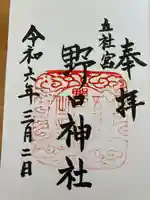 奉拝
野宮神社
令和六年三月二日